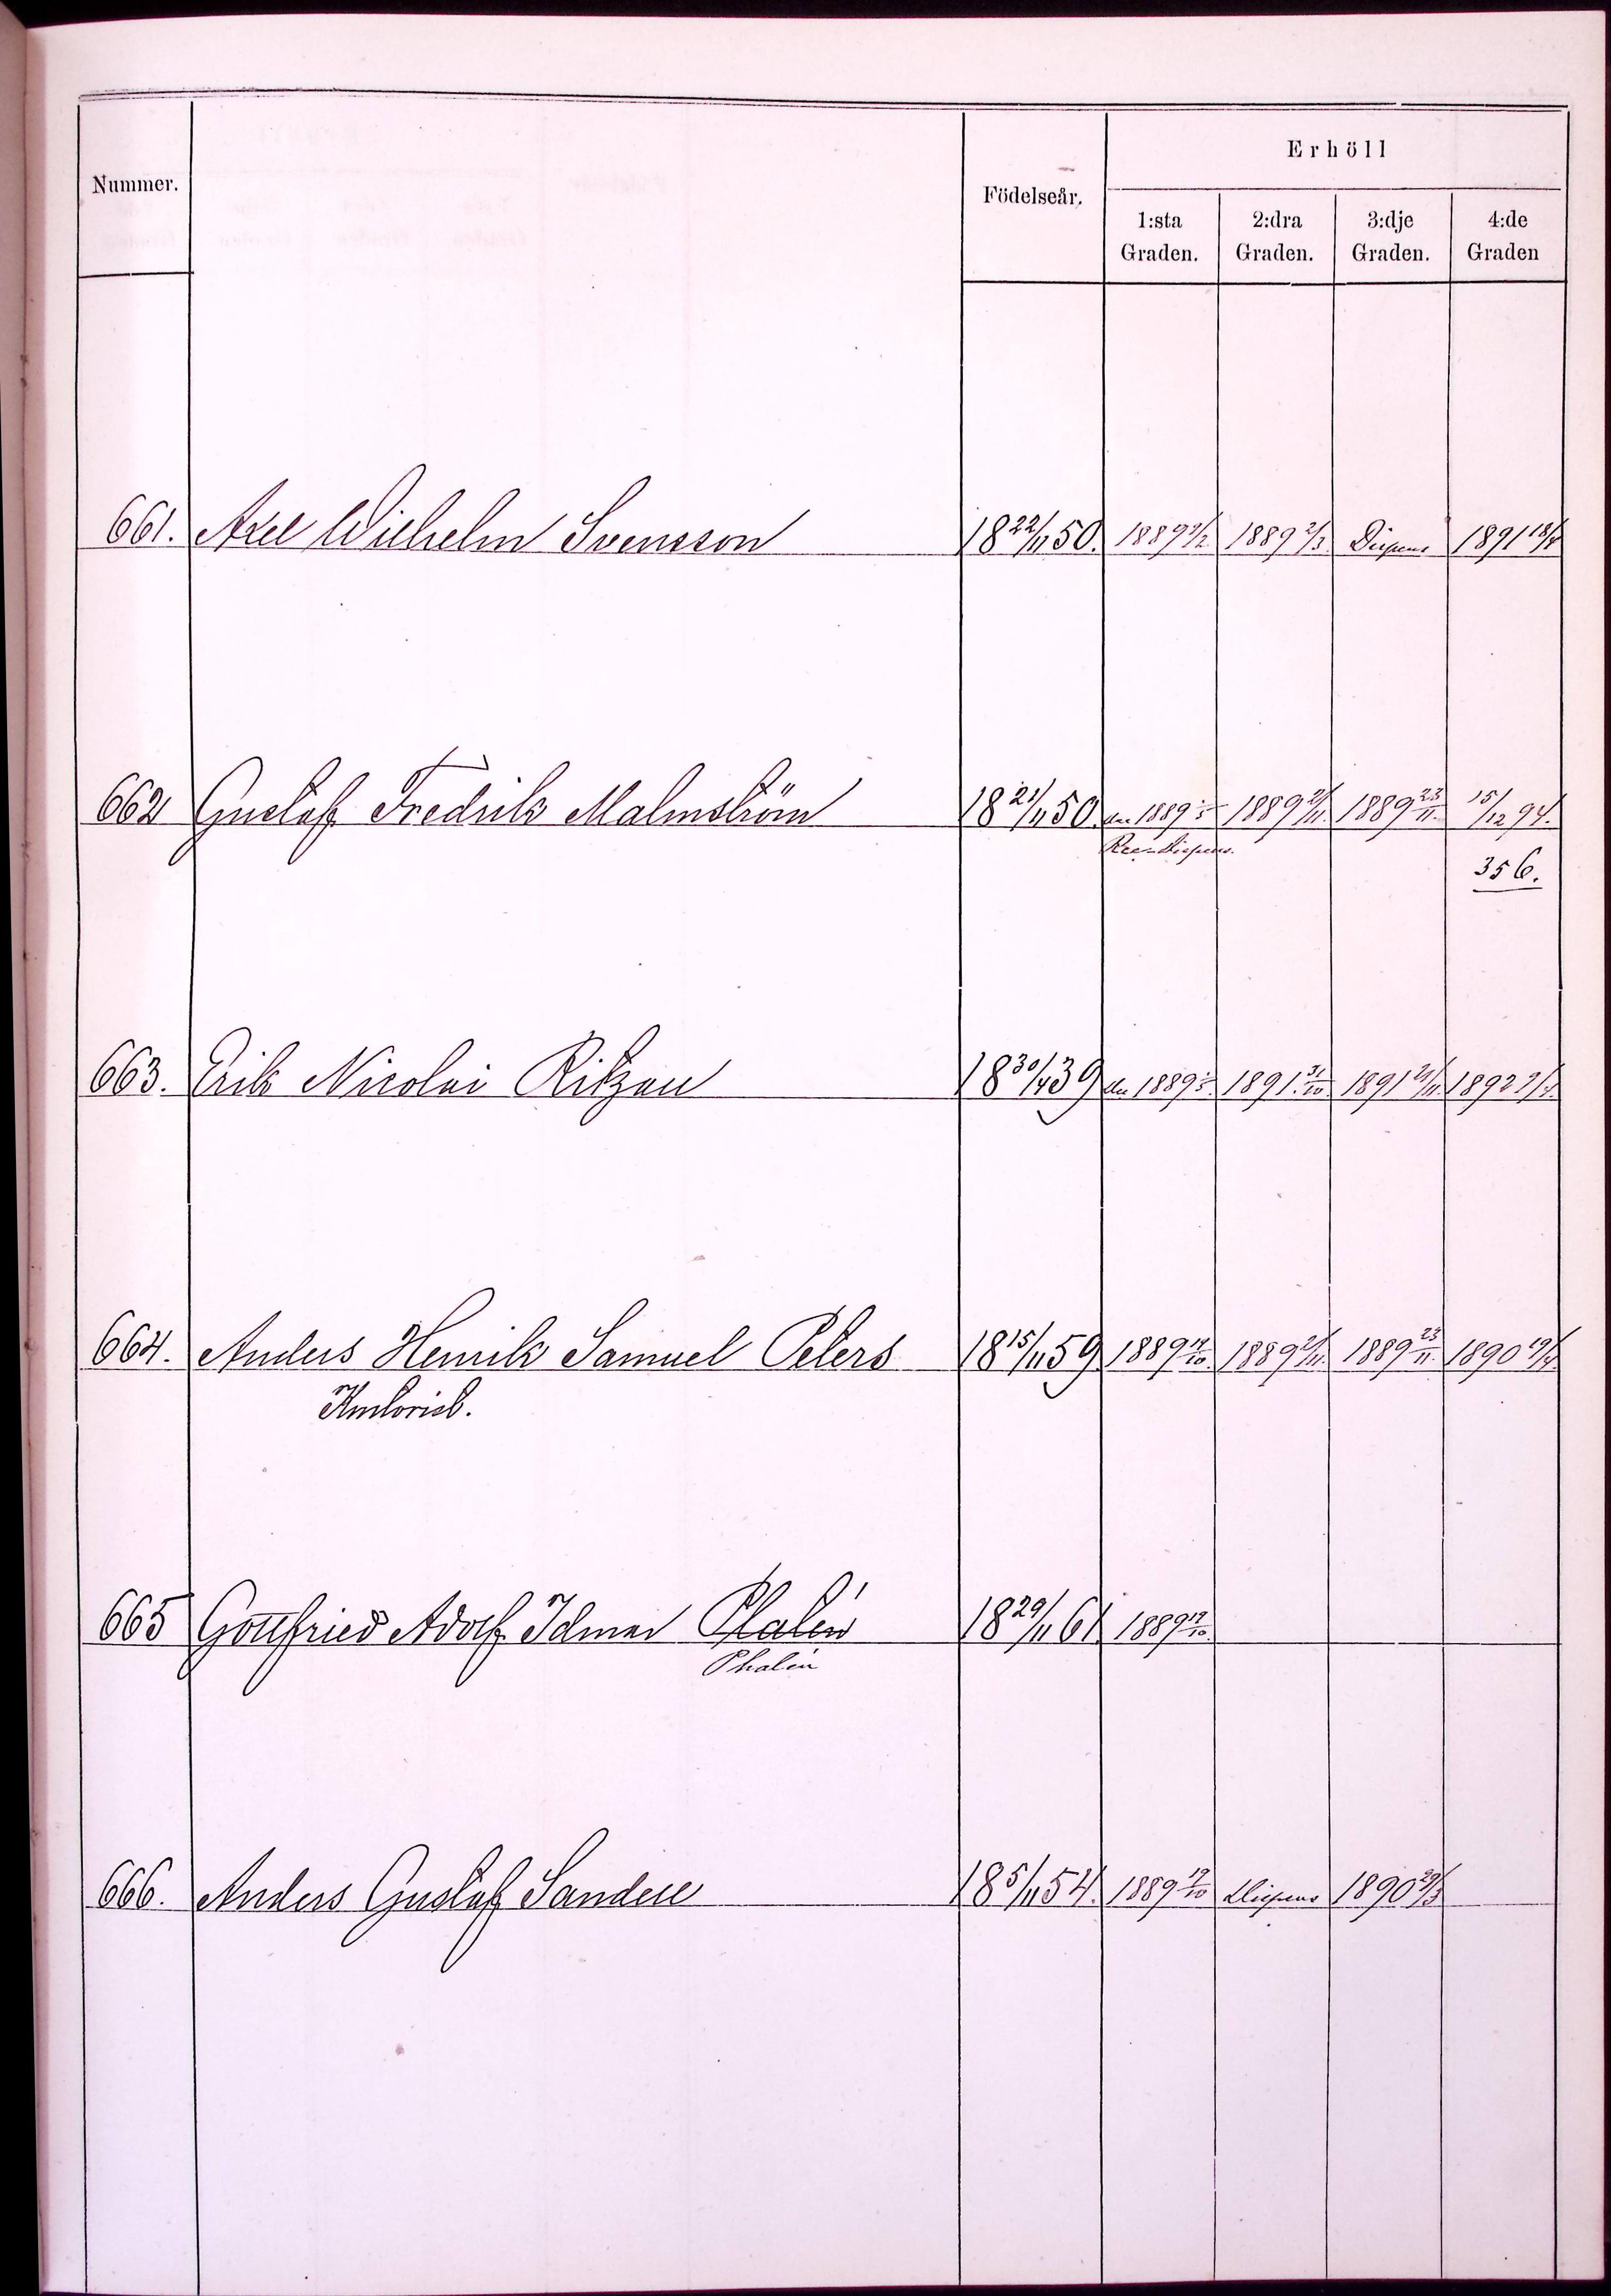 Nummer.
Födelseår.
Erhöll
1:sta Graden.
2:dra Graden.
3:dje Graden.
4:de Graden
661. Axel Wilhelm Svensson 18 22/11 50. 1889 1889 2/3 Dispens 1891 18/4
662 Gustaf Fredrik Malmström 18 21/11 50. 1889 1889 21/11 1889 23/11. 15/12 94.
Dispens.
356.
663. Erik Nicolai Ritzau 18 30/4 39 1889 1891 31/10 1891 21/11 1892
664. Anders Henrik Samuel Peters 18 15/11 59 1889 1889 21/11 1889 23/11. 1890 19/4
665 Gottfried Adolf Idmar Phalén 18 29/11 61 1889
Phalén
666. Anders Gustaf Sandell 18 5/11 54. 1889 19/10 Dispens 1890 29/3